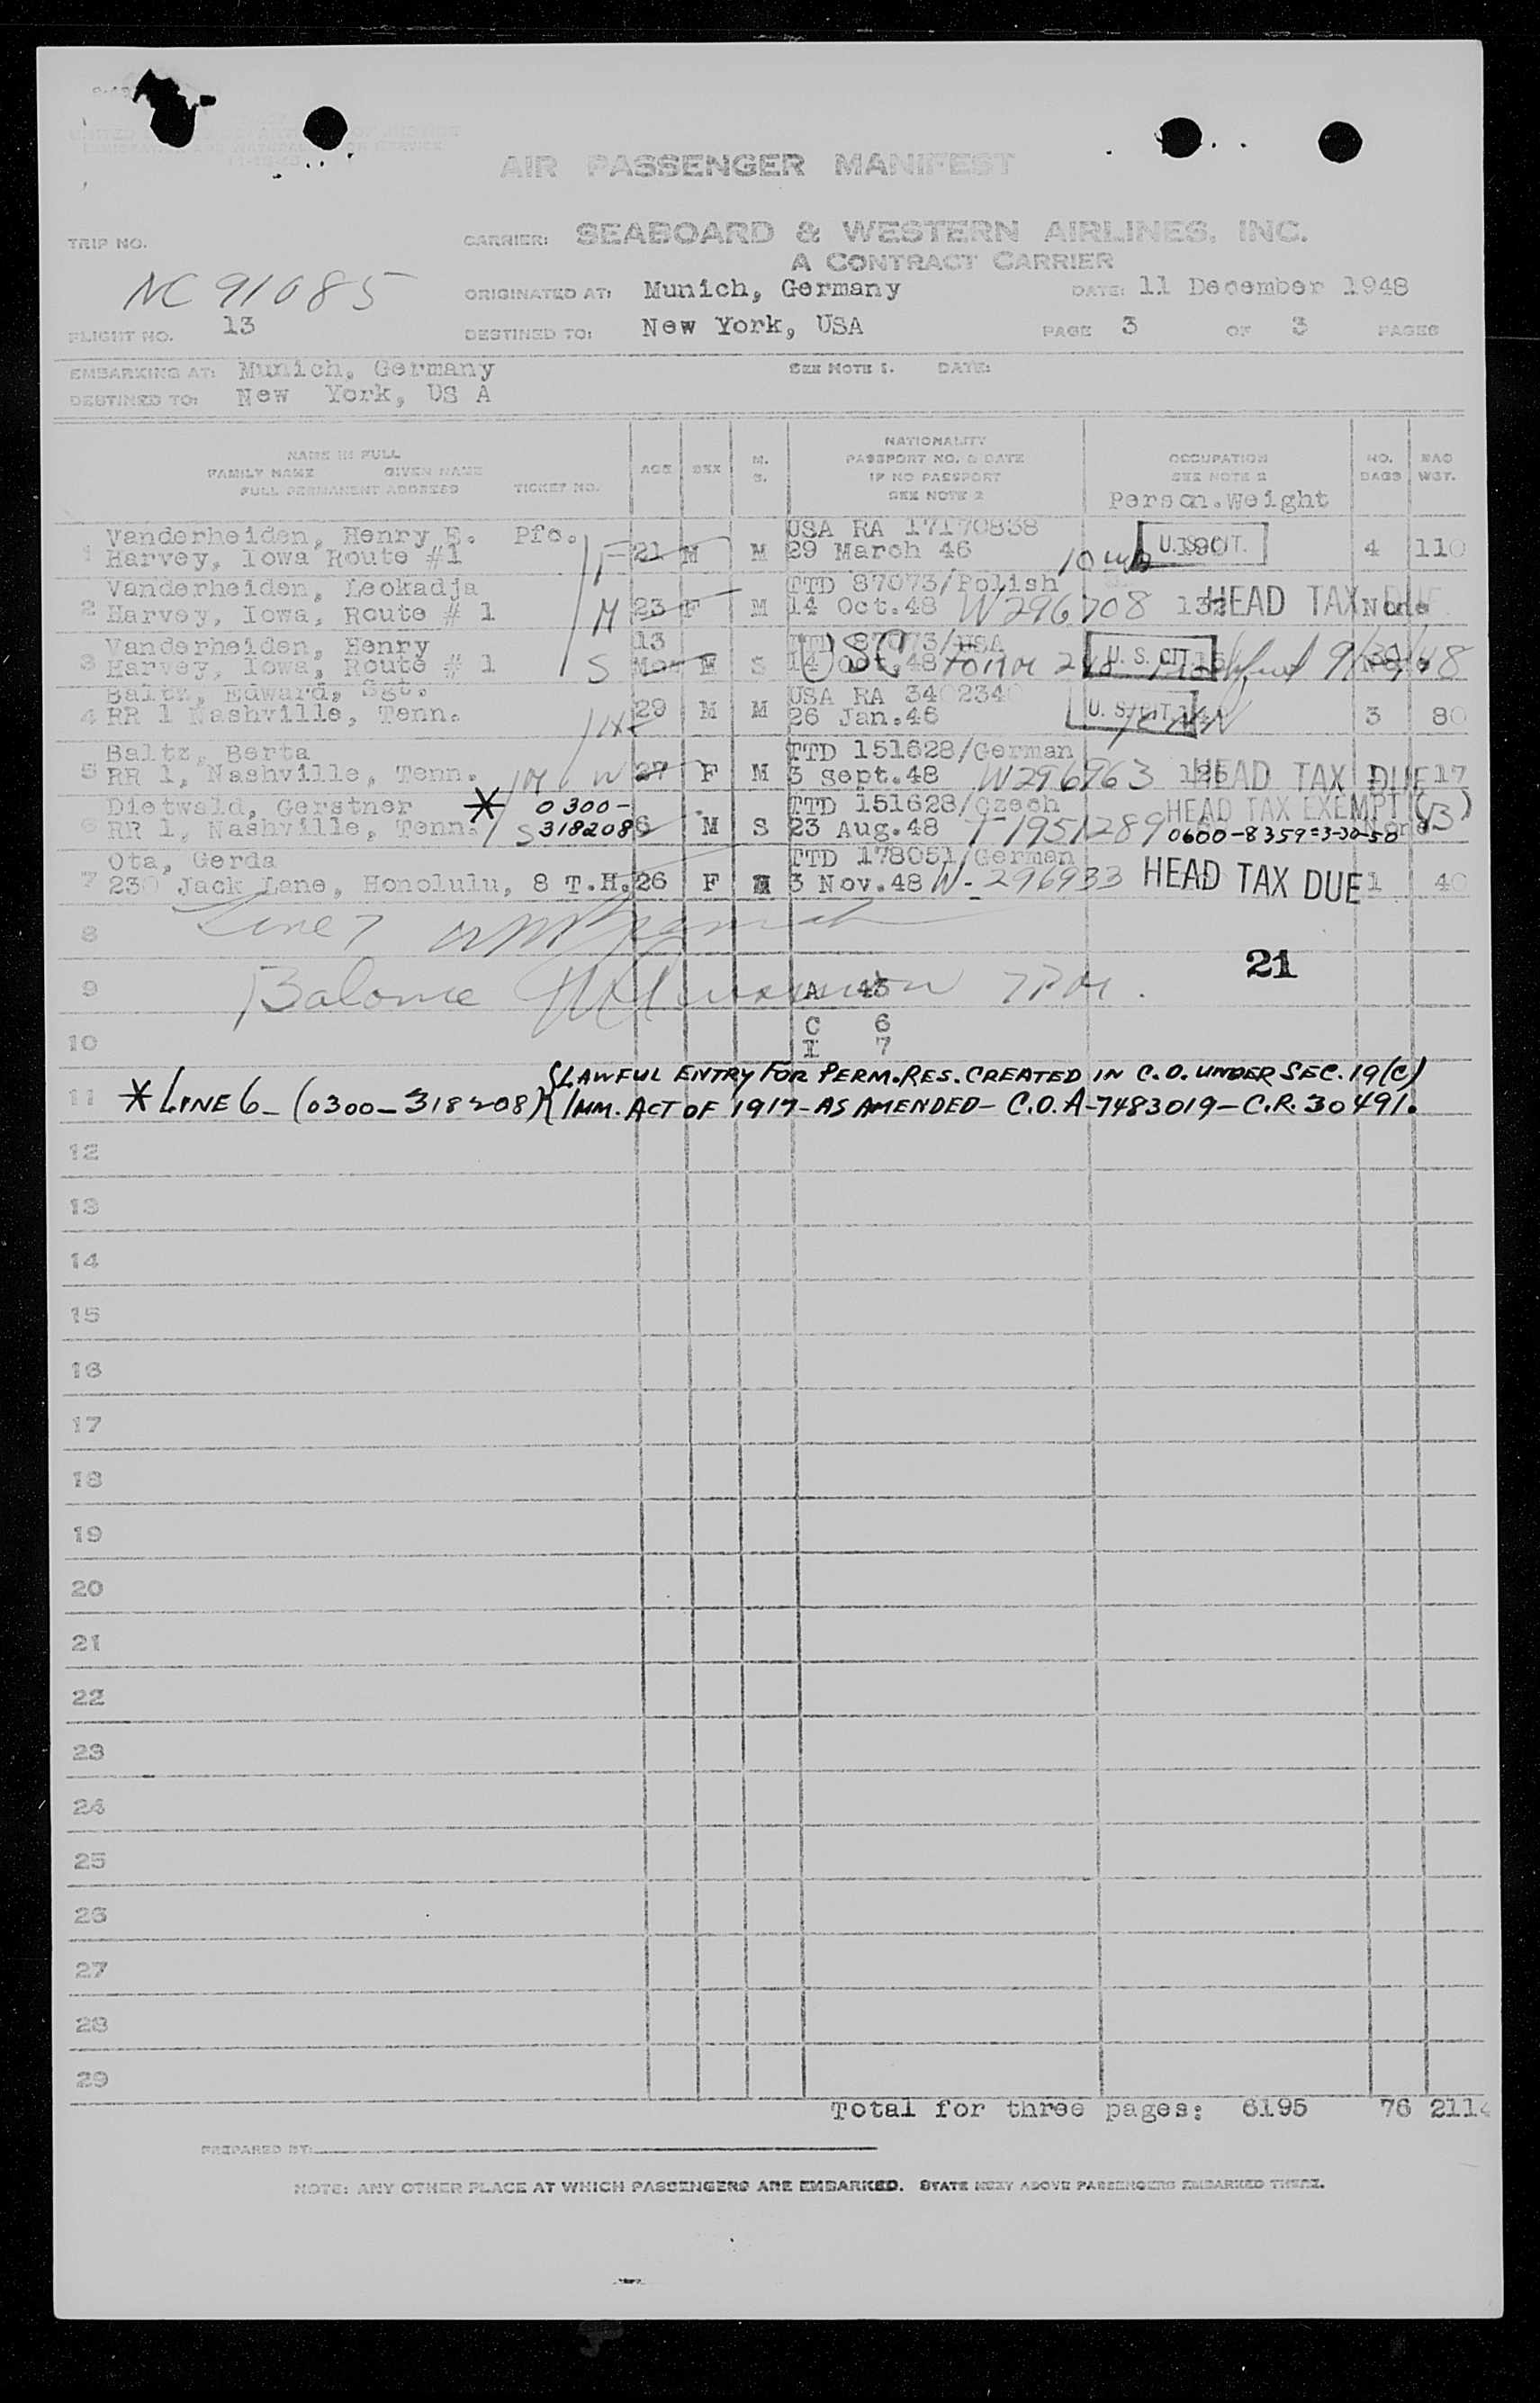 AIR PASSENGER MANIFEST
TRIP NO. CARRIER: SEABOARD & WESTERN AIRLINES, INC.
A CONTRACT CARRIER
NC 91085 ORIGINATED AT: Munich, Germany DATE: 11 December 1948
FLIGHT NO. 13 DESTINED TO: New York, USA PAGE 3 OF 3 PAGES
EMBARKING AT: Munich, Germany SEE NOTE 1. DATE:
DESTINED TO: New York, US A
NAME IN FULL
FAMILY NAME GIVEN NAME
FULL PERMANENT ADDRESS TICKET NO.
AGE SEX M. S.
NATIONALITY
PASSPORT NO. & DATE
IF NO PASSPORT
SEE NOTE 2
OCCUPATION
SEE NOTE 2
Person.Weight
NO. BAGS
BAG WGT.
Vanderheiden, Henry E. Pfc. USA RA 17170838
1 Harvey, Iowa Route #1 F 21 M M 29 March 46 U. S. CIT. 190 4 110
Vanderheiden, Leokadja TTD 87073/Polish
2 Harvey, Iowa, Route # 1 M 23 F M 14 Oct.48 W296708 HEAD TAX DUE None
Vanderheiden, Henry 13 TTD 87073/USA
3 Harvey, Iowa, Route # 1 S Mo S 14 Oct.48 USC U. S. CIT.
Baltz, Edward, Sgt. USA RA 3402340
4 RR 1 Nashville, Tenn. 29 M M 26 Jan.46 U. S. CIT. 3 80
Baltz, Berta TTD 151628/German
5 RR 1, Nashville, Tenn. M W 27 F M 3 Sept.48 W296963 HEAD TAX DUE 17
Dietwald, Gerstner * 0300- TTD 151628/Czech HEAD TAX EXEMPT
6 RR 1, Nashville, Tenn. S 318208 6 M S 23 Aug.48 T-1951289 0600-8359=3-30-50
Ota, Gerda TTD 178051/German
7 230 Jack Lane, Honolulu, 8 T.H. 26 F 3 Nov.48 W-296933 HEAD TAX DUE 1 40
8 Line 7
21
9 Balance A 45 7PM.
C 6
10 I 7
LAWFUL ENTRY FOR PERM.RES. CREATED IN C.O. UNDER SEC. 19(C)
11 * LINE 6_ (0300-318208) IMM. ACT OF 1917-AS AMENDED- C.O. A-7483019-C.R. 30491.
12
13
14
15
16
17
18
19
20
21
22
23
24
25
26
27
28
29
Total for three pages: 6195 76 2114
PREPARED BY:
NOTE: ANY OTHER PLACE AT WHICH PASSENGERS ARE EMBARKED. STATE NEXT ABOVE PASSENGERS EMBARKED THERE.